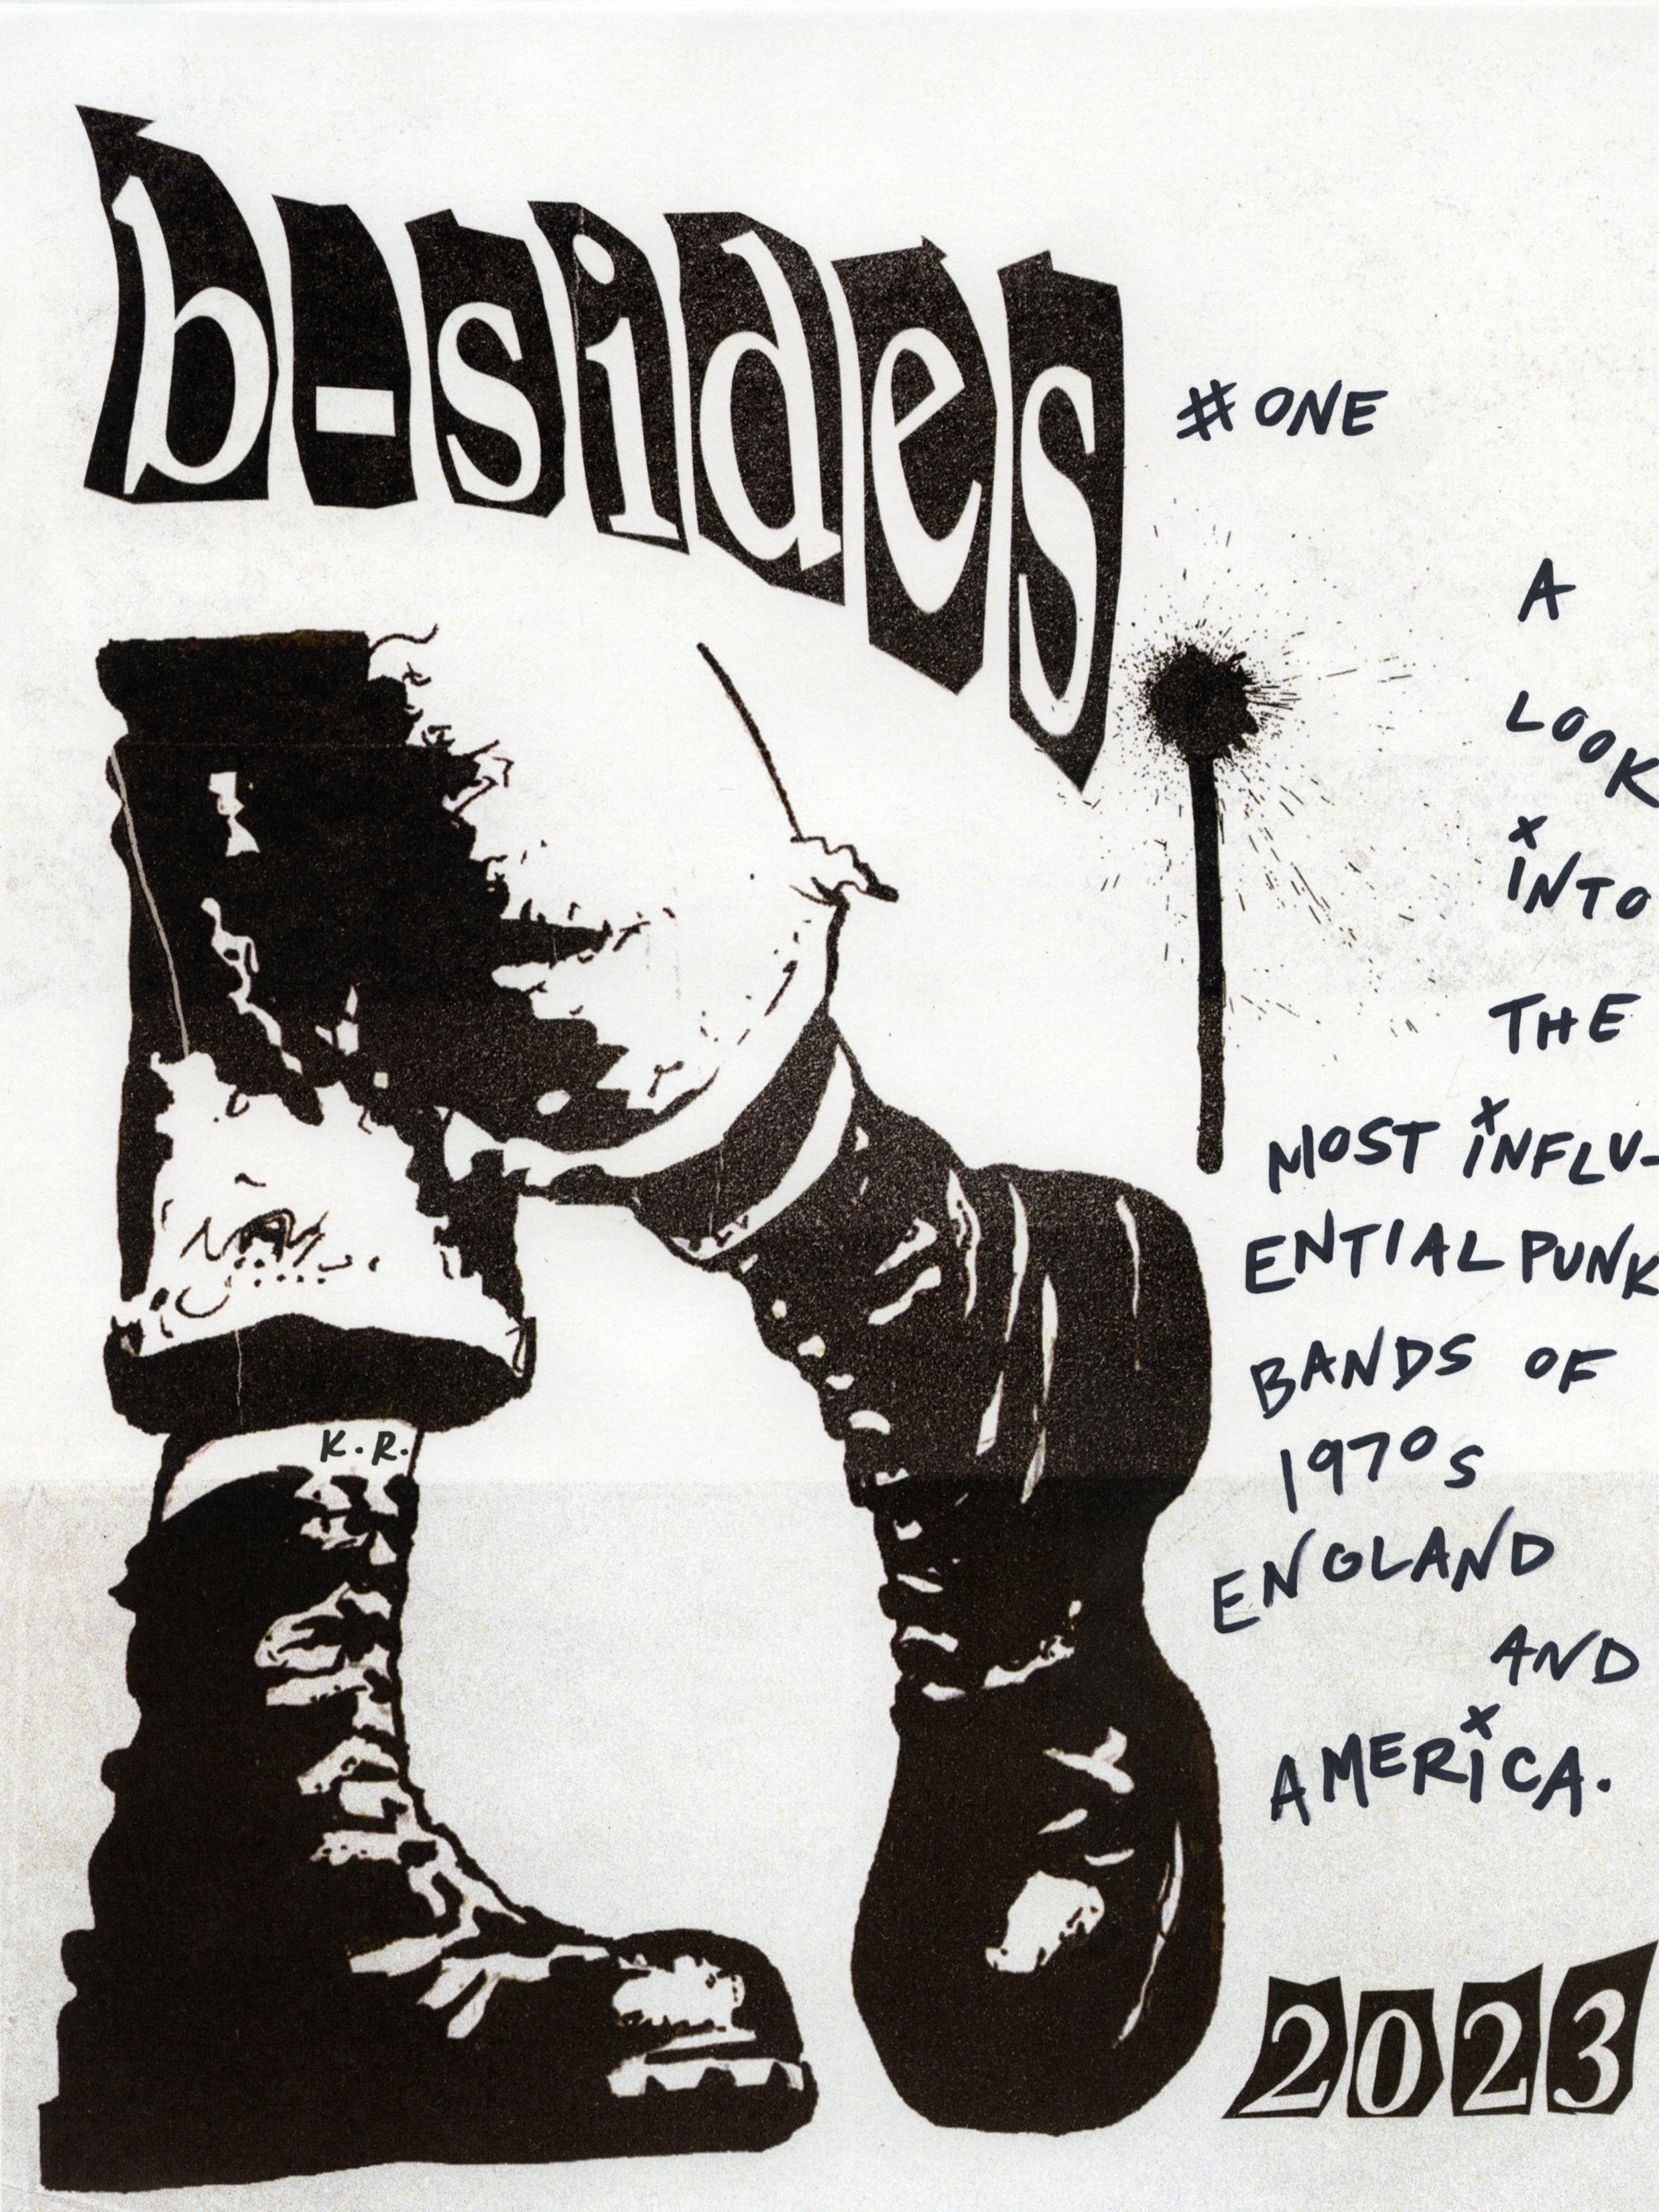 b-sides
#ONE
A
LOOK
INTO
THE
MOST INFLU-
ENTIAL PUNK
BANDS OF
1970s
ENGLAND
AND
AMERICA.
K.R.
2023